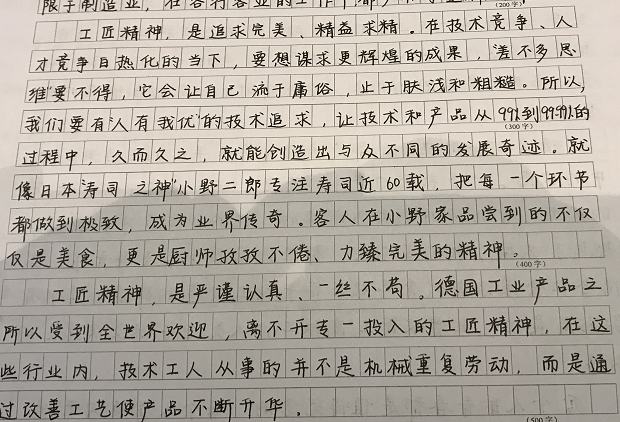 限于制造业，在各行各业的工作中都
(200字)
工匠精神，是追求完美、精益求精。在技术竞争、人
才竞争日热化的当下，要想谋求更辉煌的成果，“差不多思
维”要不得，它会让自己流于庸俗，止于肤浅和粗糙。所以，
我们要有“人有我优”的技术追求，让技术和产品从99%到99.99%的
(300字)
过程中，久而久之，就能创造出与众不同的发展奇迹。就
像日本“寿司之神”小野二郎专注寿司近60载，把每一个环节
都做到极致，成为业界传奇。客人在小野家品尝到的不仅
仅是美食，更是厨师孜孜不倦、力臻完美的精神。
(400字)
工匠精神，是严谨认真、一丝不苟。德国工业产品之
所以受到全世界欢迎，离不开专一投入的工匠精神，在这
些行业内，技术工人从事的并不是机械重复劳动，而是通
过改善工艺使产品不断开华。
(500字)